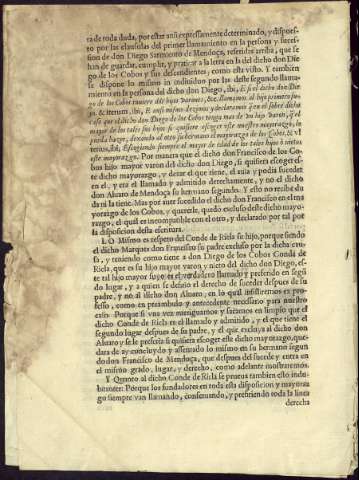 ra de toda duda, por estar ansi expressamente determinado, y dispues-
to por las clausulas del primer llamamiento en la persona y suces-
sion de don Diego Sarmiento de Mendoça, referidas arriba, que se
han de guardar, cumplir, y praticar a la letra en la del dicho don Die
go de los Cobos y sus descendientes, como esta visto. Y tambien
se dispone lo mismo in indiuiduo por las deste segundo llama-
miento en la persona del dicho don Diego, ibi, E si el dicho don Die
go de los Cobos tuuiere dos hijos varones, &c. llamamos al hijo primero
& iterum, ibi, E assi mismo dezimos y declaramos
caso que el dicho don Diego de los Cobos tenga mas de vn hijo varon, q̃ el
mayor de los tales sus hijos si quisiere escoger este nuestro mayorazgo, lo
pueda hazer, dexando al otro su hermano el mayorazgo de los Cobos, & vl
terius, ibi, Escogiendo siempre el mayor de edad de los tales hijos o nietos
este mayorazgo. Por manera que el dicho don Francisco de los Co-
bos hijo mayor varon del dicho don Diego, si quisiera escoger es-
te dicho mayorazgo, y dexar el que tiene, el auia y podia suceder
en el, y era el llamado y admitido derechamente, y no el dicho
don Aluaro de Mendoça su hermano segundo. Y esto no recibe du
da ni la tiene. Mas por auer sucedido el dicho don Francisco en el ma
yorazgo de los Cobos, y quererle, quedò excluso deste dicho mayo-
razgo, el qual es incompatible con el otro, y declarado por tal por
la disposicion desta escritura.
LO Mismo es respeto del Conde de Ricla su hijo, porque siendo
el dicho Marques don Francisco su padre excluso por la dicha cau-
sa, y teniendo como tiene a don Diego de los Cobos Conde de
Ricla, que es su hijo mayor varon, y nieto del dicho don Diego, es-
te tal hijo mayor suyo es el verdadero llamado y preferido en segũ
do lugar, y a quien se defirio el derecho de suceder despues de su
padre, y no al dicho don Aluaro; en lo qual insistiremos ex pro-
fesso, como en preambulo y antecedente necessario para nuestro
caso. Porque si vna vez mostramos y sacamos en limpio que el
dicho Conde de Ricla es el llamado y admitido, y el que tiene el
segundo lugar despues de su padre, y el que excluya al dicho don
Aluaro y se le prefería si quisiera escoger este dicho mayorazgo, que-
dara de ay concluydo y assentado lo mismo en su hermano segun
do don Francisco de Mendoça, que despues del sucede y entra en
el mismo grado, lugar, y derecho, como adelante mostraremos.
Y Quanto al dicho Conde de Ricla se prueua tambien esto indu-
bitanter: Porque los fundadores en toda esta disposicion y mayoraz
go siempre van llamando, conseruando, y prefiriendo toda la linea
derecha